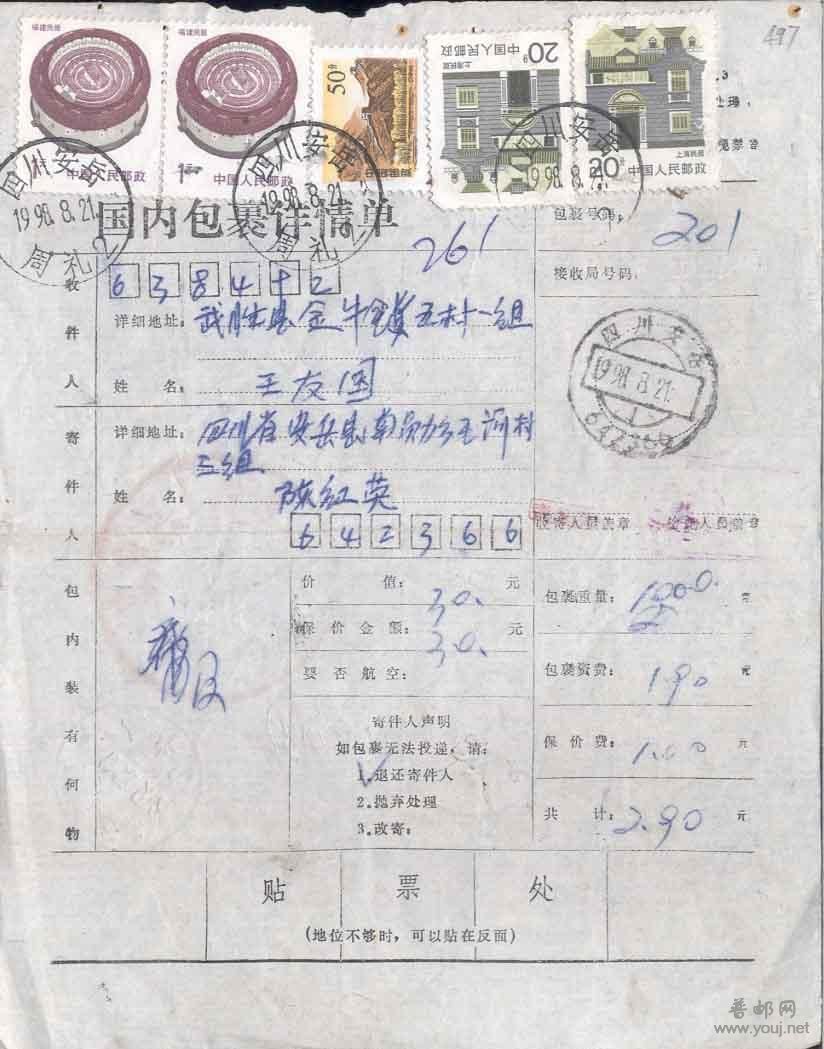 福建民居
福建民居
1元 中国人民邮政
1元 中国人民邮政
50分
中国邮政
20分
中国人民邮政
上海民居
20分
上海民居
中国人民邮政
497
四川 安岳
1998.8.21.
周礼 2
四川 安岳
1998.8.21.
周礼 2
四川 安岳
1998.8.
国内包裹详情单
261
包裹号码:
201
接收局号码:
收件人
6 3 8 4 十 2
详细地址: 武胜县金牛镇五村一组
姓 名: 王友国
四川安岳
1998.8.21.
1
寄件人
详细地址: 四川省安岳县
三组
姓 名: 陈红英
6 4 2 3 6 6
收寄人员盖章
包内装有何物
价 值: 30. 元
保价金额: 30. 元
要否航空:
包裹重量: 1000. 克
包裹资费: 1.90 元
保价费: 1.00 元
共 计: 2.90 元
寄件人声明
如包裹无法投递,请:
1.退还寄件人
2.抛弃处理
3.改寄:
贴 票 处
(地位不够时,可以贴在反面)
普邮网
www.youj.net